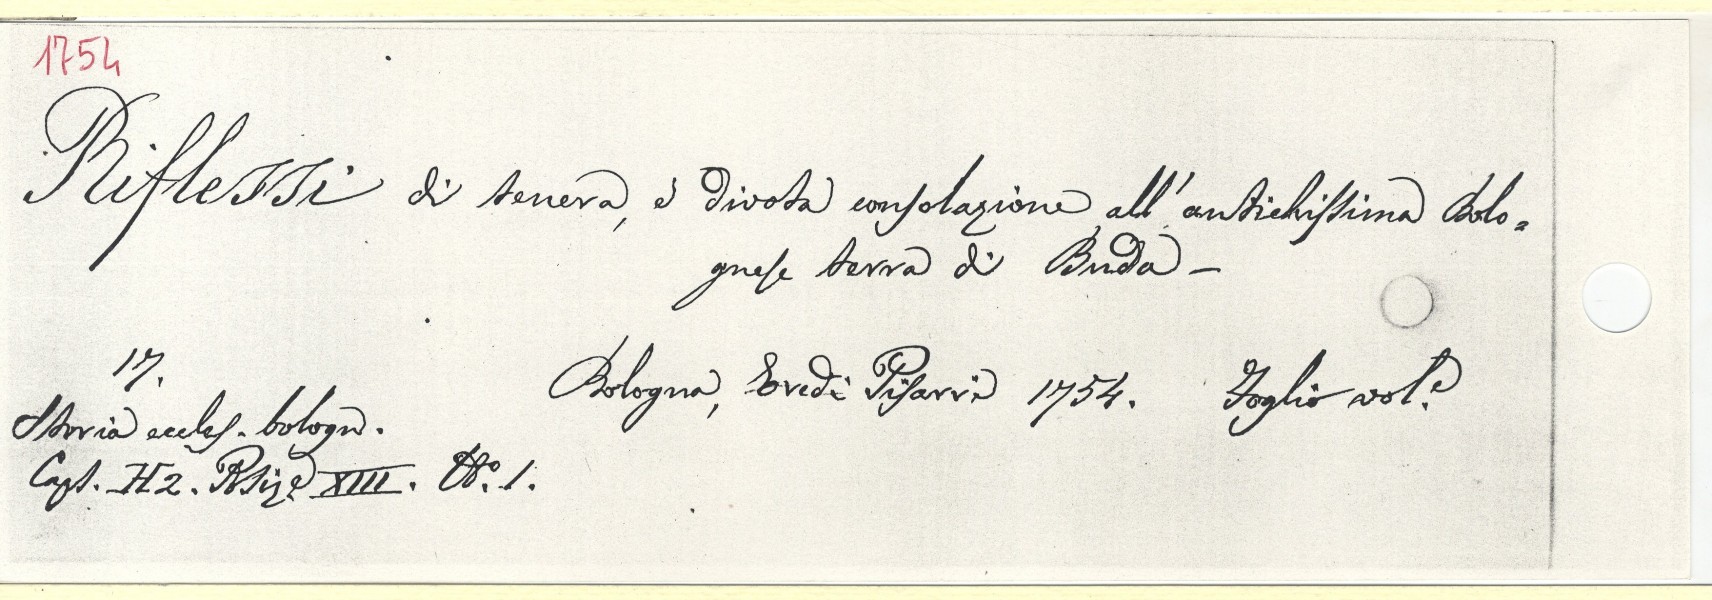 1754
Riflessi di tenera, e divota consolazione all'antichissima Bolo=
gnese terra di Buda –
17.
Bologna, Eredi Pisarri 1754. Foglio vol.e
Storia eccles. bologn.
Cart. H2. Posize XIII. No. 1.